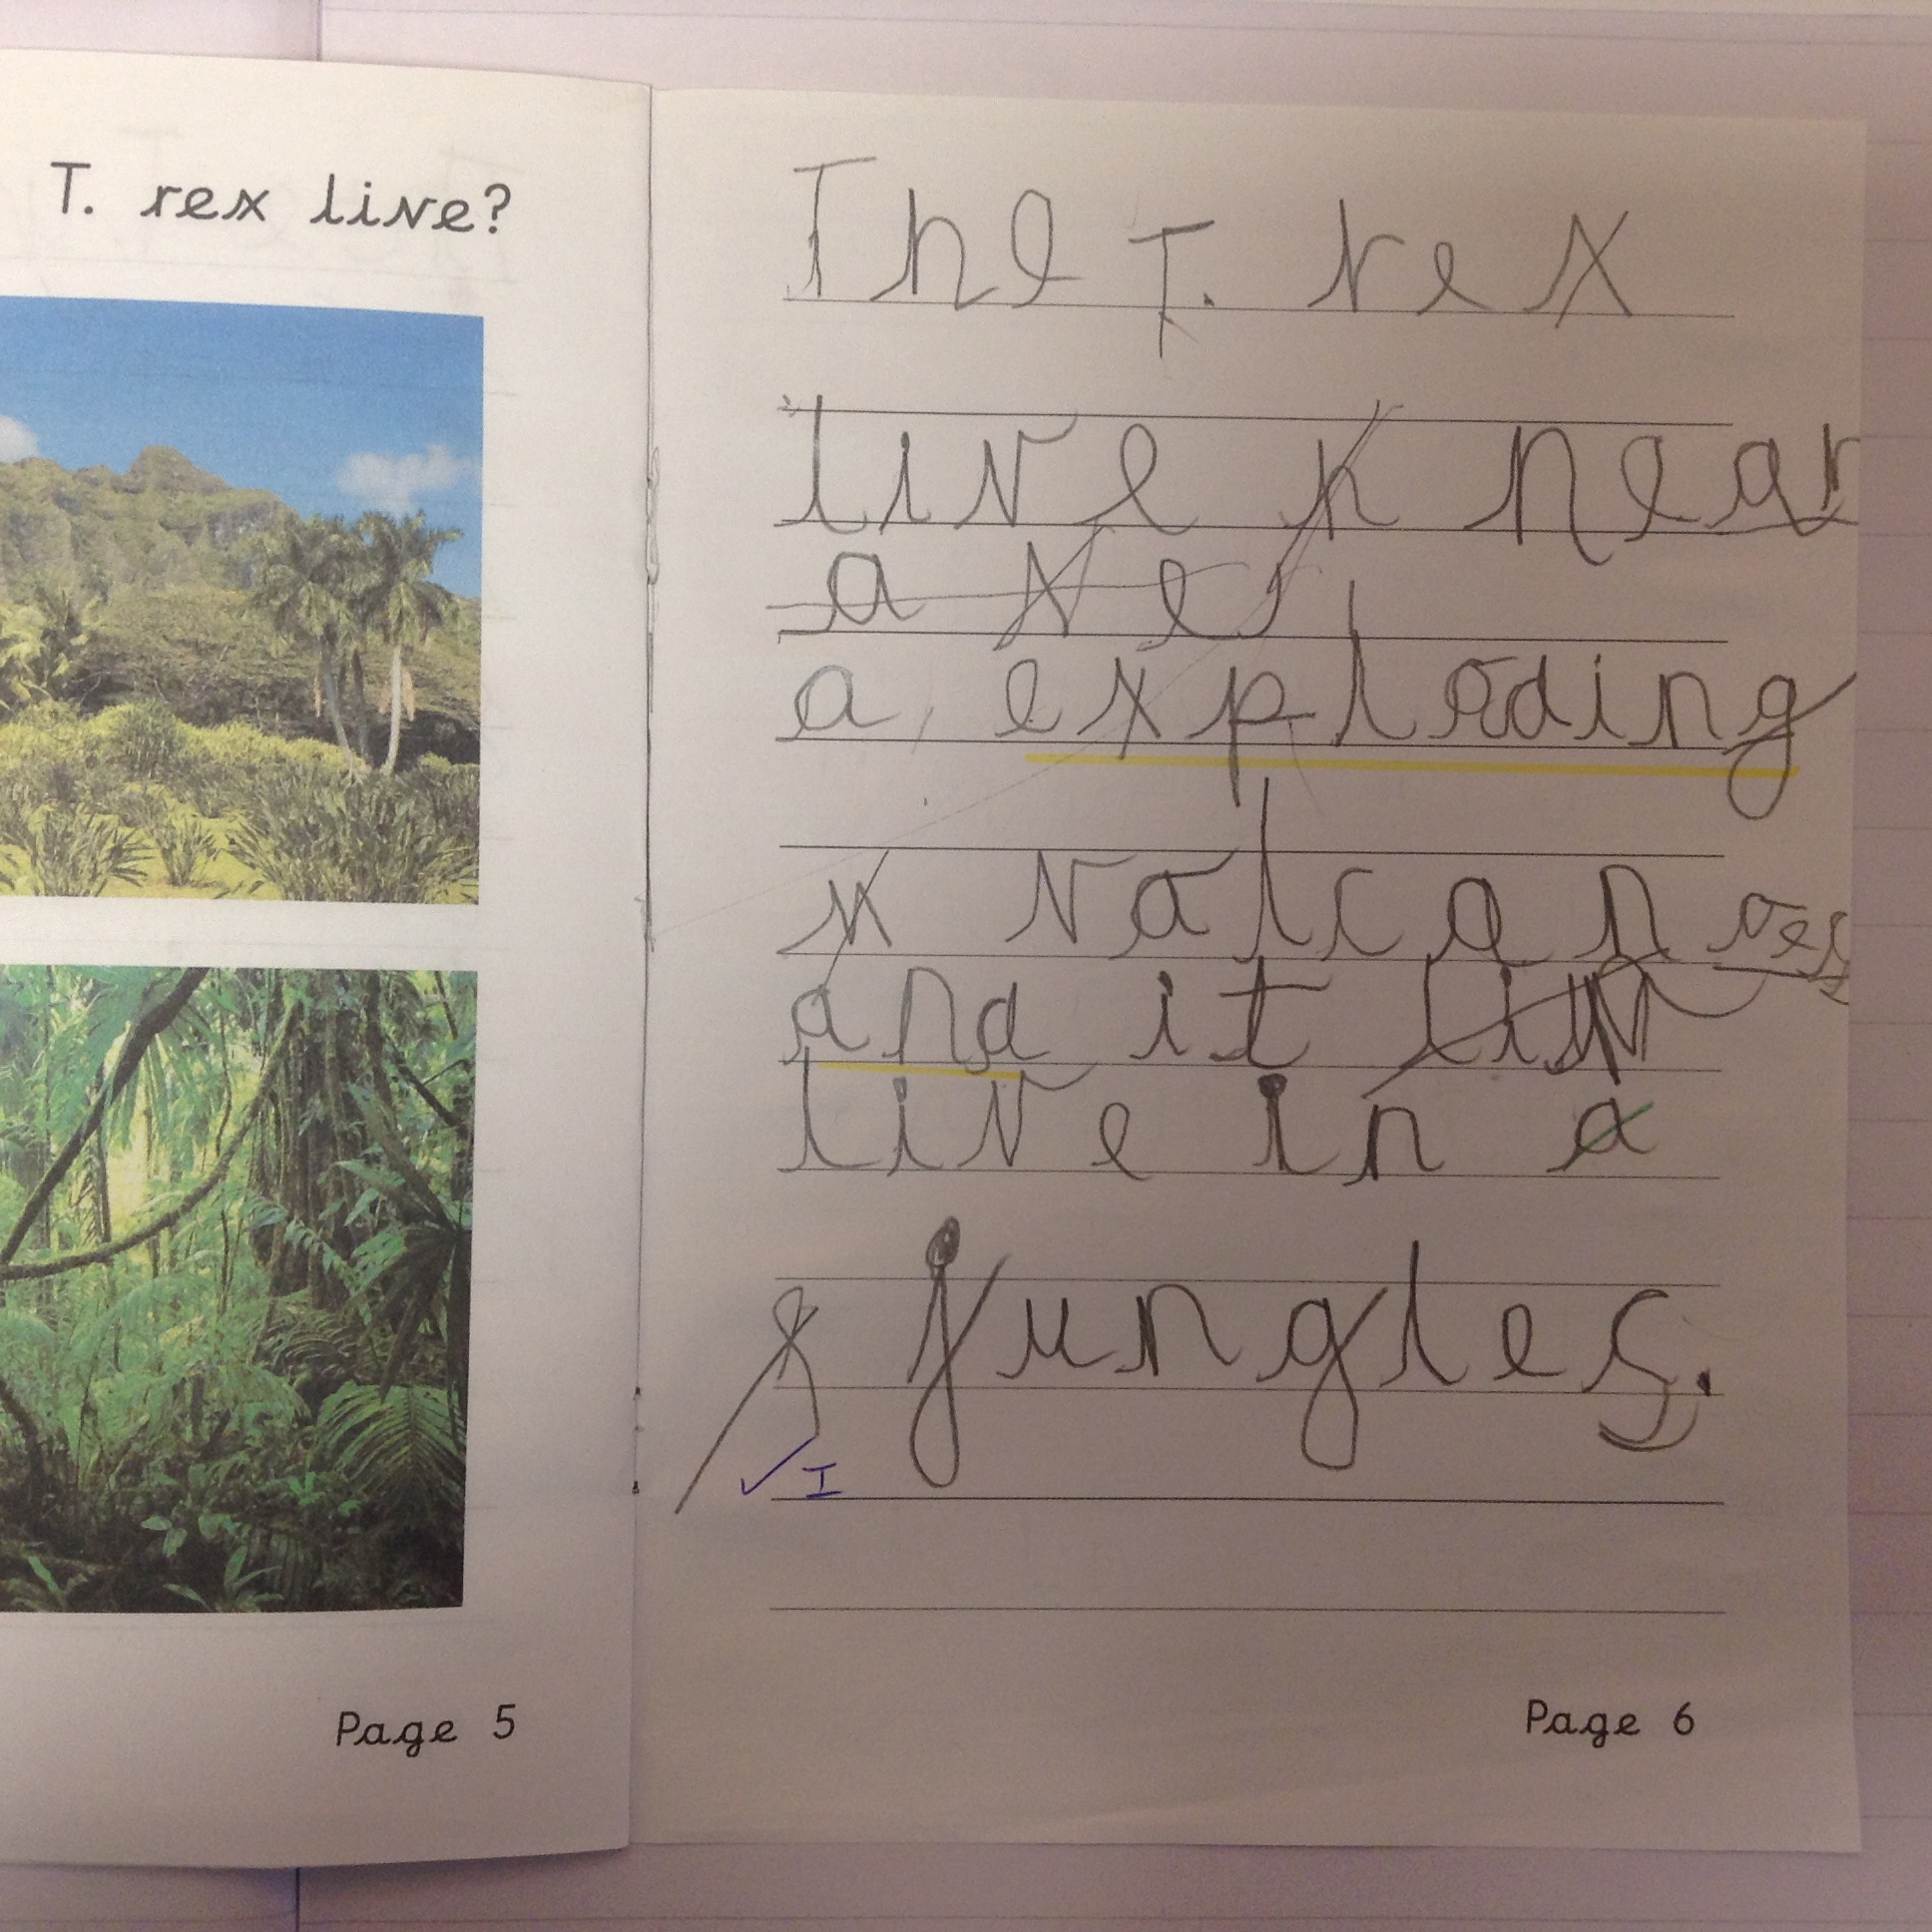 T. rex live?
Page 5
The T. rex
live near
a exploding
volcanoes
and it
live in a
jungles.
✓ I
Page 6